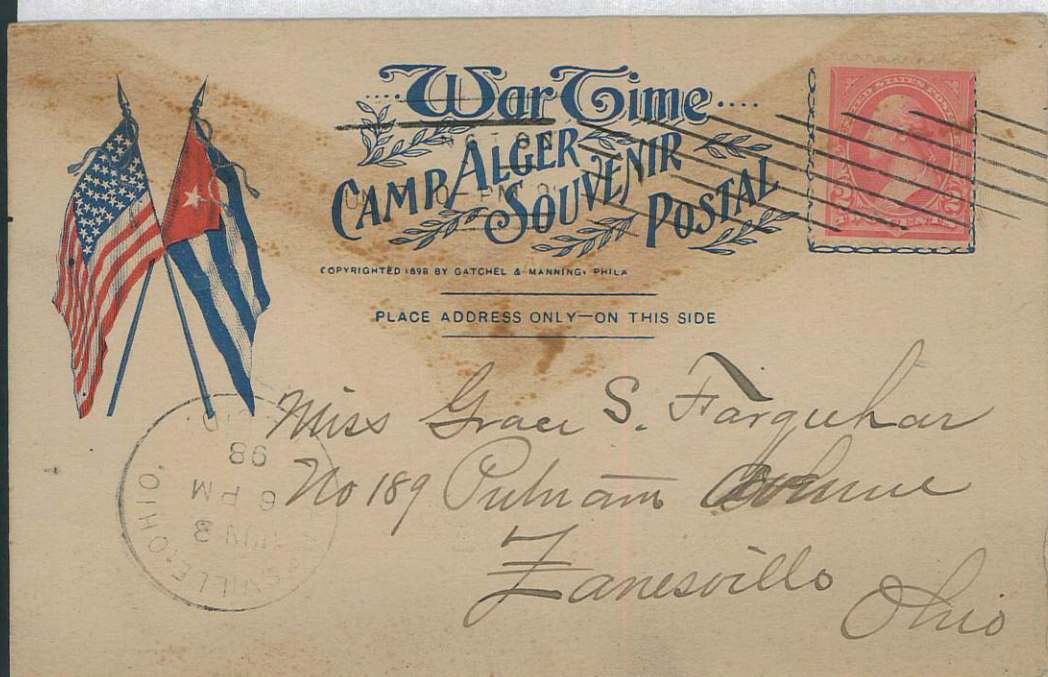 War Time
CAMP ALGER
SOUVENIR
POSTAL
COPYRIGHTED 1898 BY GATCHEL & MANNING, PHILA
PLACE ADDRESS ONLY—ON THIS SIDE
UNITED STATES POSTAGE
2 2
TWO CENTS
Miss Grace S. Farquhar
No 189 Putnam Avenue
Zanesville
Ohio
98
6 PM
JUN 3
VILLE, OHIO.